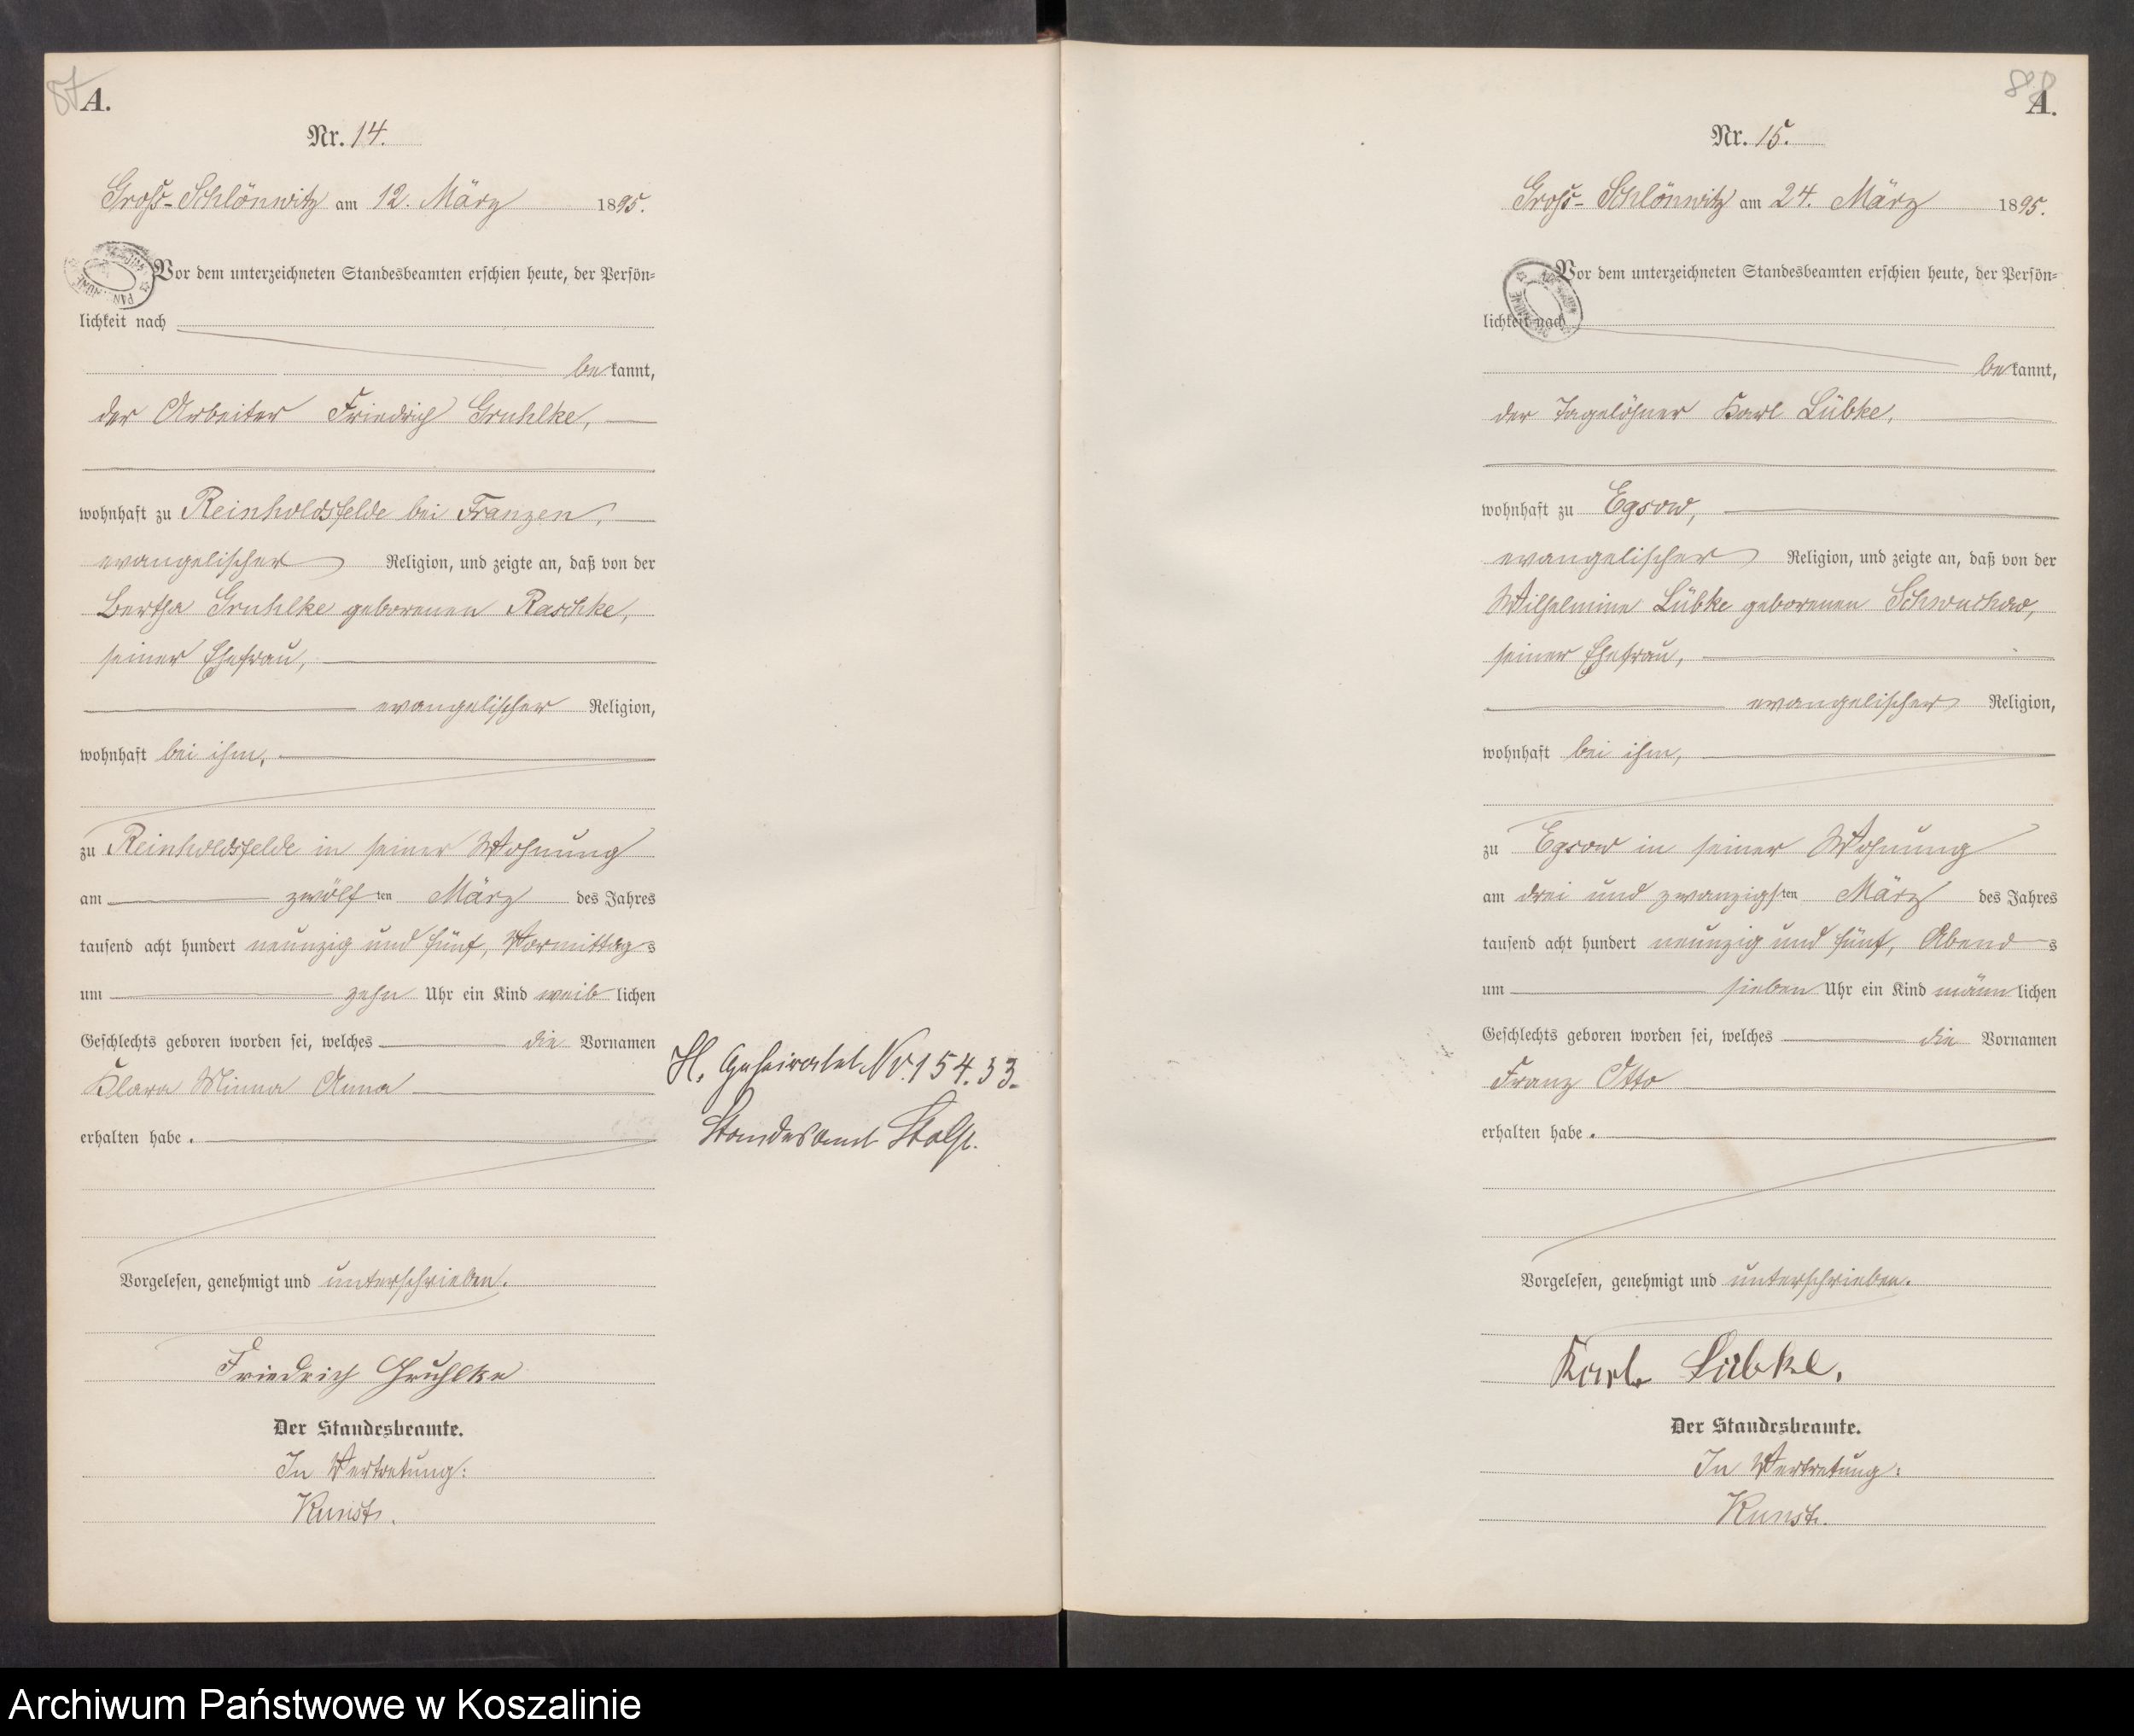 87
A.
Nr. 14.
Groß-Schlönwitz am 12. März 1895.
Vor dem unterzeichneten Standesbeamten erschien heute, der Persön=
lichkeit nach
be kannt,
der Arbeiter Friedrich Gruhlke,
wohnhaft zu Reinholdsfelde bei Franzen,
evangelischer Religion, und zeigte an, daß von der
Bertha Gruhlke geborenen Raschke,
seiner Ehefrau,
evangelischer Religion,
wohnhaft bei ihm,
zu Reinholdsfelde in seiner Wohnung
am zwölf ten März des Jahres
tausend acht hundert neunzig und fünf, Vormittag s
um zehn Uhr ein Kind weib lichen
Geschlechts geboren worden sei, welches die Vornamen
Klara Minna Anna
erhalten habe.
Vorgelesen, genehmigt und unterschrieben.
Friedrich Gruhlke
Der Standesbeamte.
In Vertretung:
Kunst.
H. Geheiratet Nr. 154.33.
Standesamt Stolp.
88
A.
Nr. 15.
Groß-Schlönwitz am 24. März 1895.
Vor dem unterzeichneten Standesbeamten erschien heute, der Persön=
lichkeit nach
be kannt,
der Tagelöhner Karl Lübke,
wohnhaft zu Egsow,
evangelischer Religion, und zeigte an, daß von der
Wilhelmine Lübke geborenen Schwuchow,
seiner Ehefrau,
evangelischer Religion,
wohnhaft bei ihm,
zu Egsow in seiner Wohnung
am drei und zwanzigsten März des Jahres
tausend acht hundert neunzig und fünf, Abend s
um sieben Uhr ein Kind männ lichen
Geschlechts geboren worden sei, welches die Vornamen
Franz Otto
erhalten habe.
Vorgelesen, genehmigt und unterschrieben.
Karl Lübke.
Der Standesbeamte.
In Vertretung:
Kunst.
Archiwum Państwowe w Koszalinie